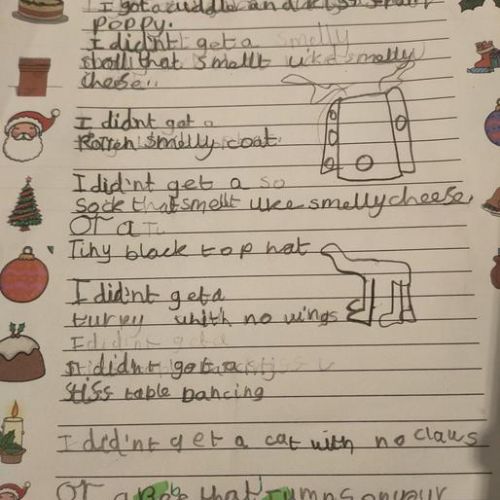 I got a cuddle and kiss
poppy.
I did'nt get a smelly
that smellt like smelly
cheese..
I didnt got a
Rotten smelly coat.
I did'nt get a so
Sock that smellt like smelly cheese,
Or a
Tiny black top hat
I did'nt get a
turvy whith no wings
I did'nt get a
it didn't got a
stiss table Dancing
I did'nt get a cat with no claws
Or a that Jumps on your